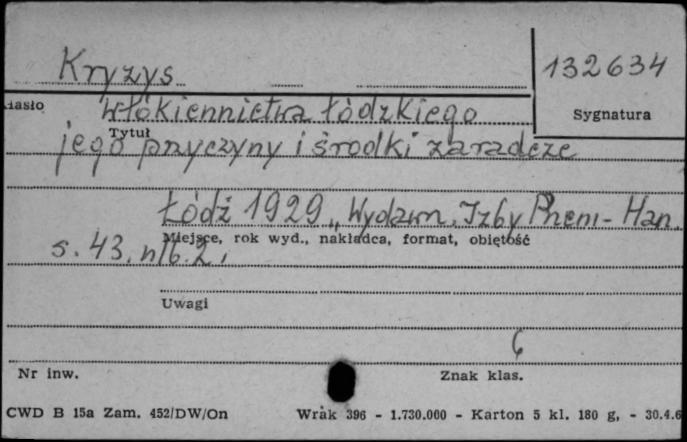 Kryzys
132634
Hasło
włókiennictwa łódzkiego
Sygnatura
Tytuł
jego przyczyny i środki zaradcze
Łódź 1929, Wydawn. Izby Przem-Han.
Miejsce, rok wyd., nakładca, format, objętość
s. 43, nlb. 2,
Uwagi
6
Nr inw.
Znak klas.
CWD B 15a Zam. 452/DW/On Wrak 396 - 1.730.000 - Karton 5 kl. 180 g, - 30.4.6